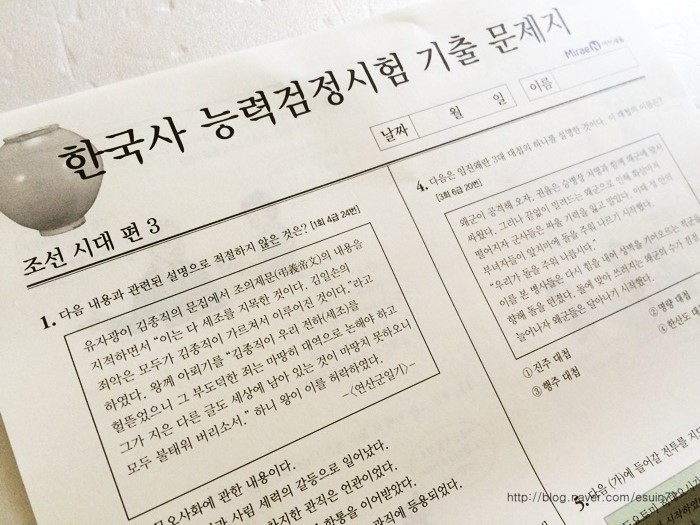 한국사 능력검정시험 기출 문제지
Mirae
날짜 월 일 이름
조선 시대 편 3
1. 다음 내용과 관련된 설명으로 적절하지 않은 것은? [1회 4급 24번]
유자광이 김종직의 문집에서 조의제문(弔義帝文)의 내용을
지적하면서 "이는 다 세조를 지목한 것이다. 김일손의
죄악은 모두가 김종직이 가르쳐서 이루어진 것이다."라고
하였다. 왕께 아뢰기를 "김종직이 우리 전하(세조)를
헐뜯었으니 그 부도덕한 죄는 마땅히 대역으로 논해야 하고
그가 지은 다른 글도 세상에 남아 있는 것이 마땅치 못하오니
모두 불태워 버리소서." 하니 왕이 이를 허락하였다.
-<연산군일기>-
무오사화에 관한 내용이다.
사림 세력의 갈등으로 일어났다.
관직은 언관이었다.
학통을 이어받았다.
관직에 등용되었다.
4. 다음은 임진왜란 3대 대첩의 하나를 설명한 것이다. 이 대첩의 이름은?
[3회 6급 20번]
왜군이 공격해 오자, 권율은 승병장 처영과 함께 왜군에 맞서
싸웠다. 그러나 끊임없이 밀려드는 왜군으로 인해 화살마저
떨어지자 군사들은 싸울 기력을 잃고 말았다. 이때 성 안의
부녀자들이 앞치마에 돌을 주워 나르기 시작했다.
"우리가 돌을 주워 나릅시다."
이를 본 병사들은 다시 힘을 내어 성벽을 기어오르는 왜군을
향해 돌을 던졌다. 돌에 맞아 쓰러지는 왜군의 수가 점점
늘어나자 왜군들은 달아나기 시작했다.
① 진주 대첩
② 명량 대첩
③ 행주 대첩
④ 한산도 대
5. 다음 (가)에 들어갈 전투를 지도
http://blog.naver.com/esuin77